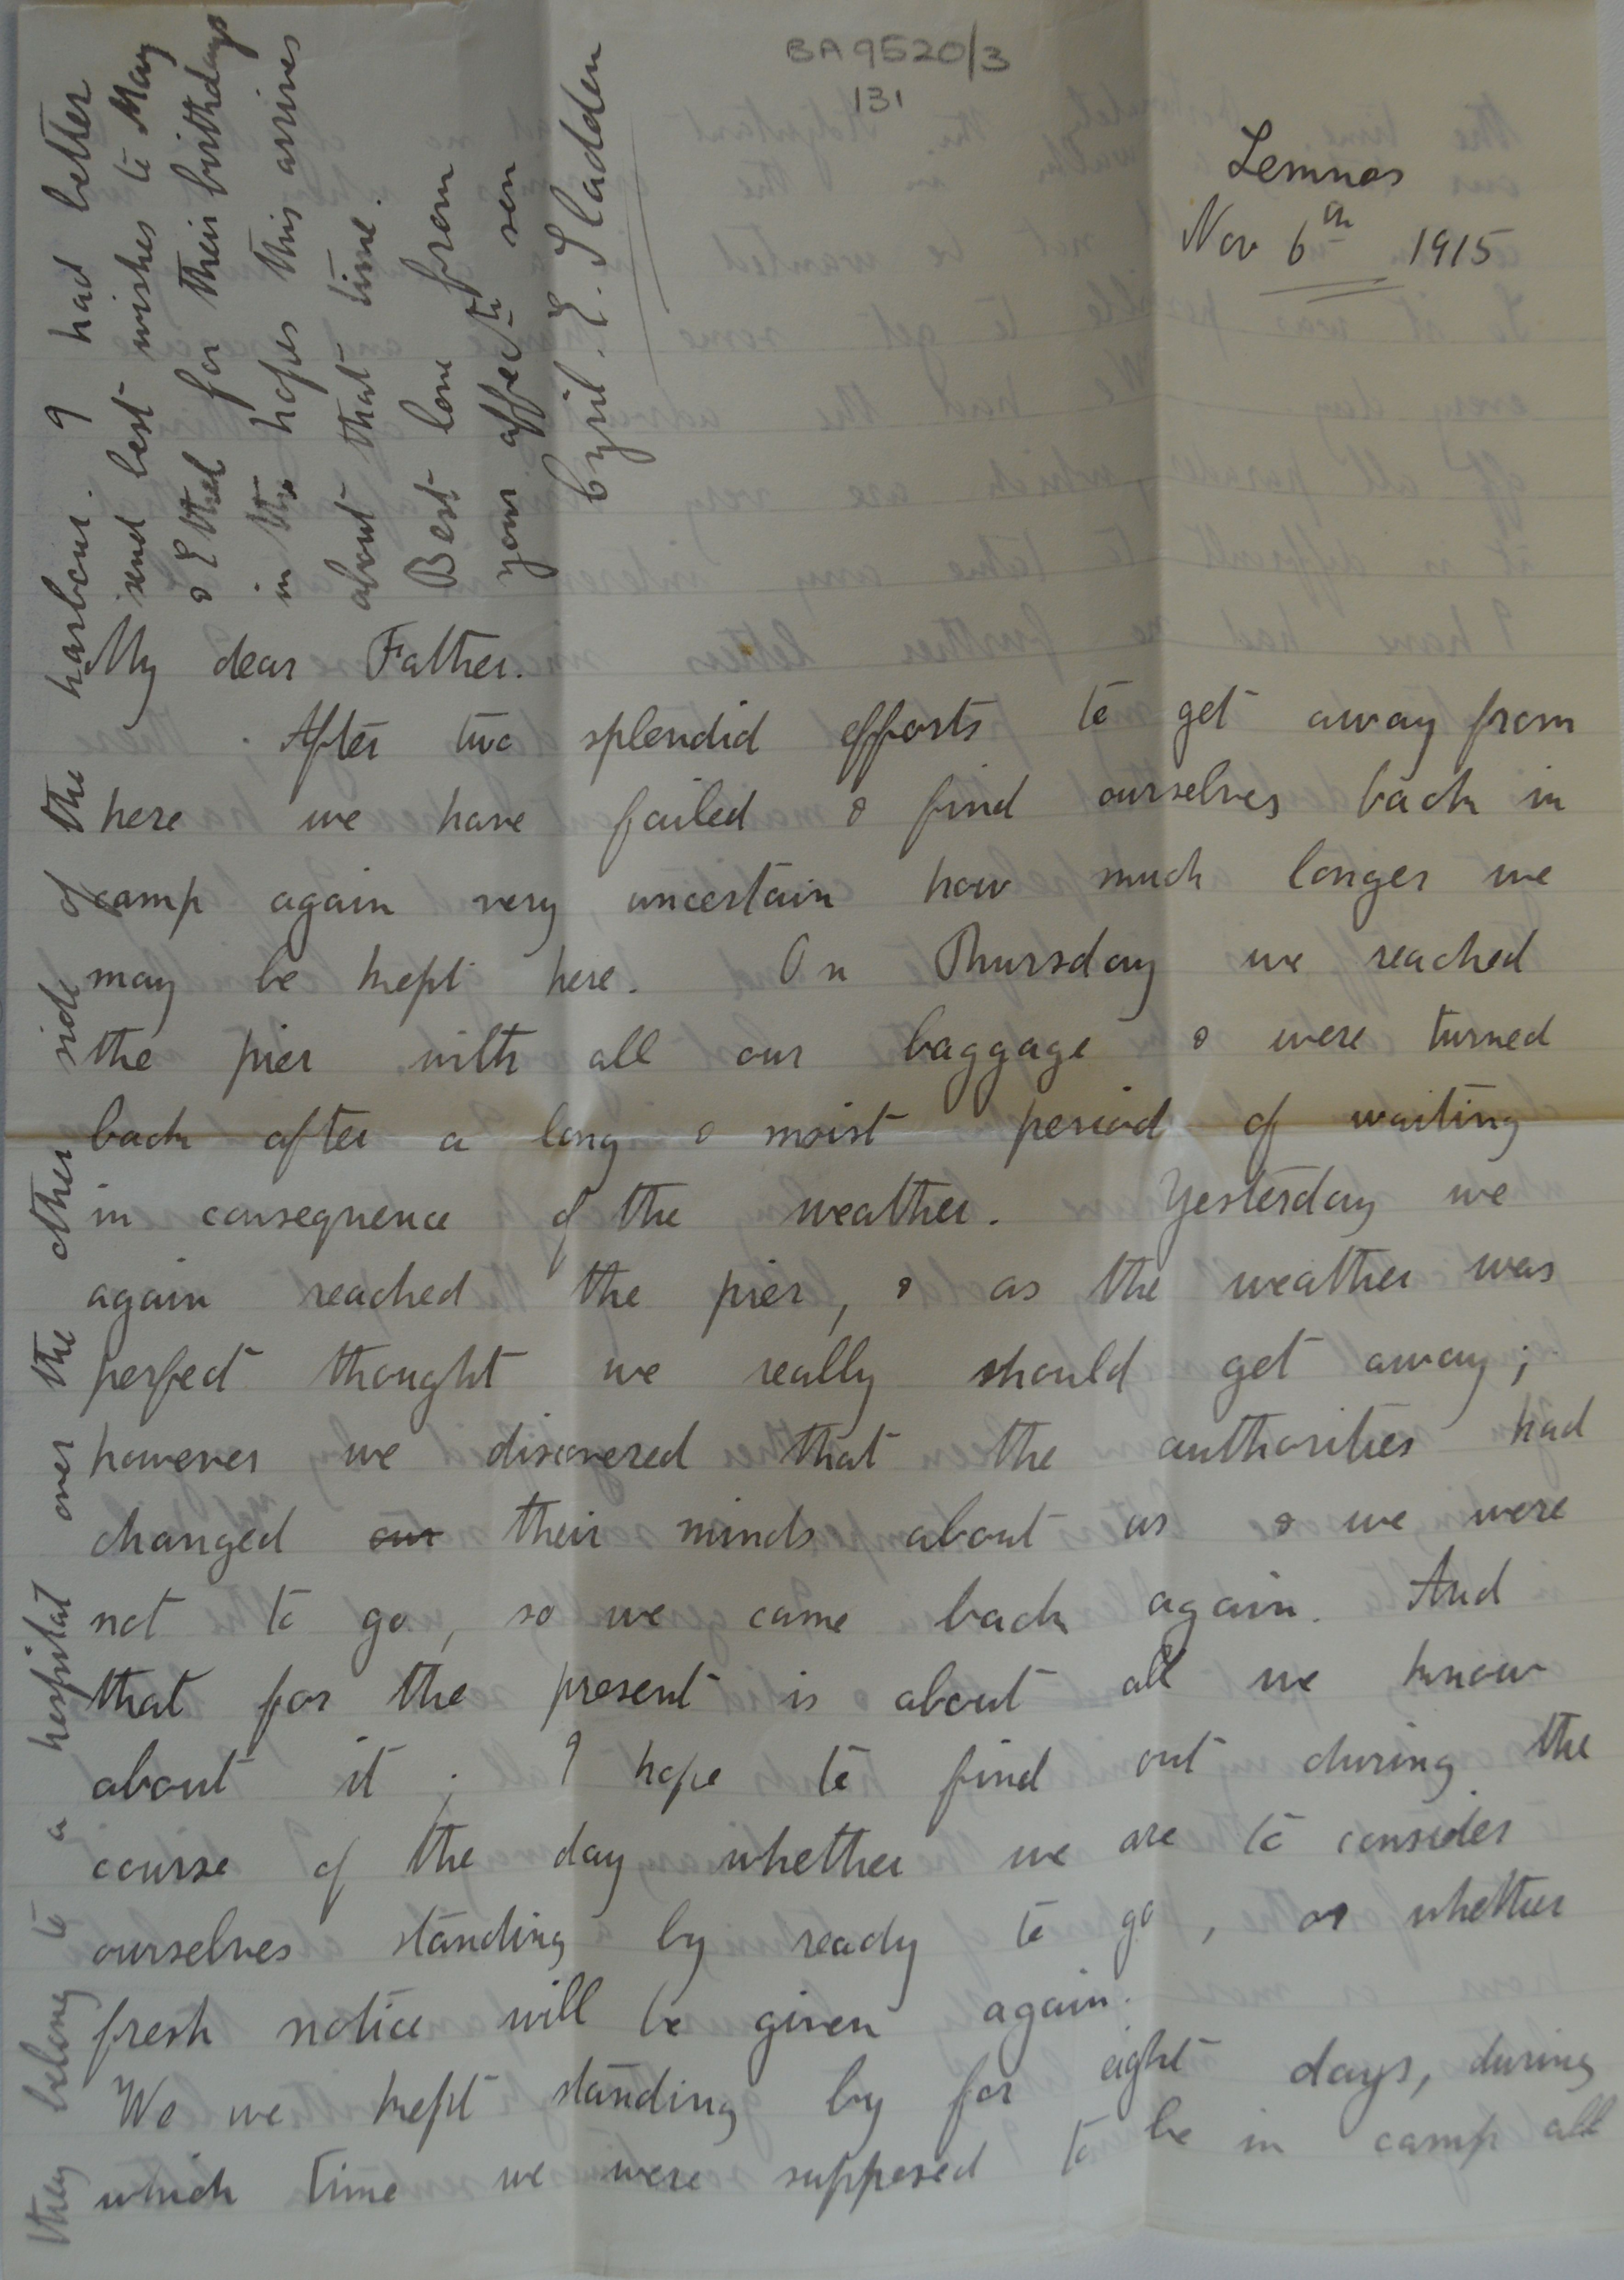 BA9520/3
131
Lemnos
Nov 6th 1915
My dear Father.
After two splendid efforts to get away from
here we have failed & find ourselves back in
camp again very uncertain how much longer we
may be kept here. On Thursday we reached
the pier with all our baggage & were turned
back after a long & moist period of waiting
in consequence of the weather. Yesterday we
again reached the pier, & as the weather was
perfect thought we really should get away;
however we discovered that the authorities had
changed our their minds about us & we were
not to go, so we came back again. And
that for the present is about all we know
about it; I hope to find out during the
course of the day whether we are to consider
ourselves standing by ready to go, or whether
fresh notice will be given again.
We we kept standing by for eight days, during
which time we were supposed to be in camp all
they belong to a hospital over the other side of the harbour. I had better
send best wishes to May
& Ethel for their birthdays
in the hopes this arrives
about that time.
Best love from
your affecte son
Cyril. E. Sladden